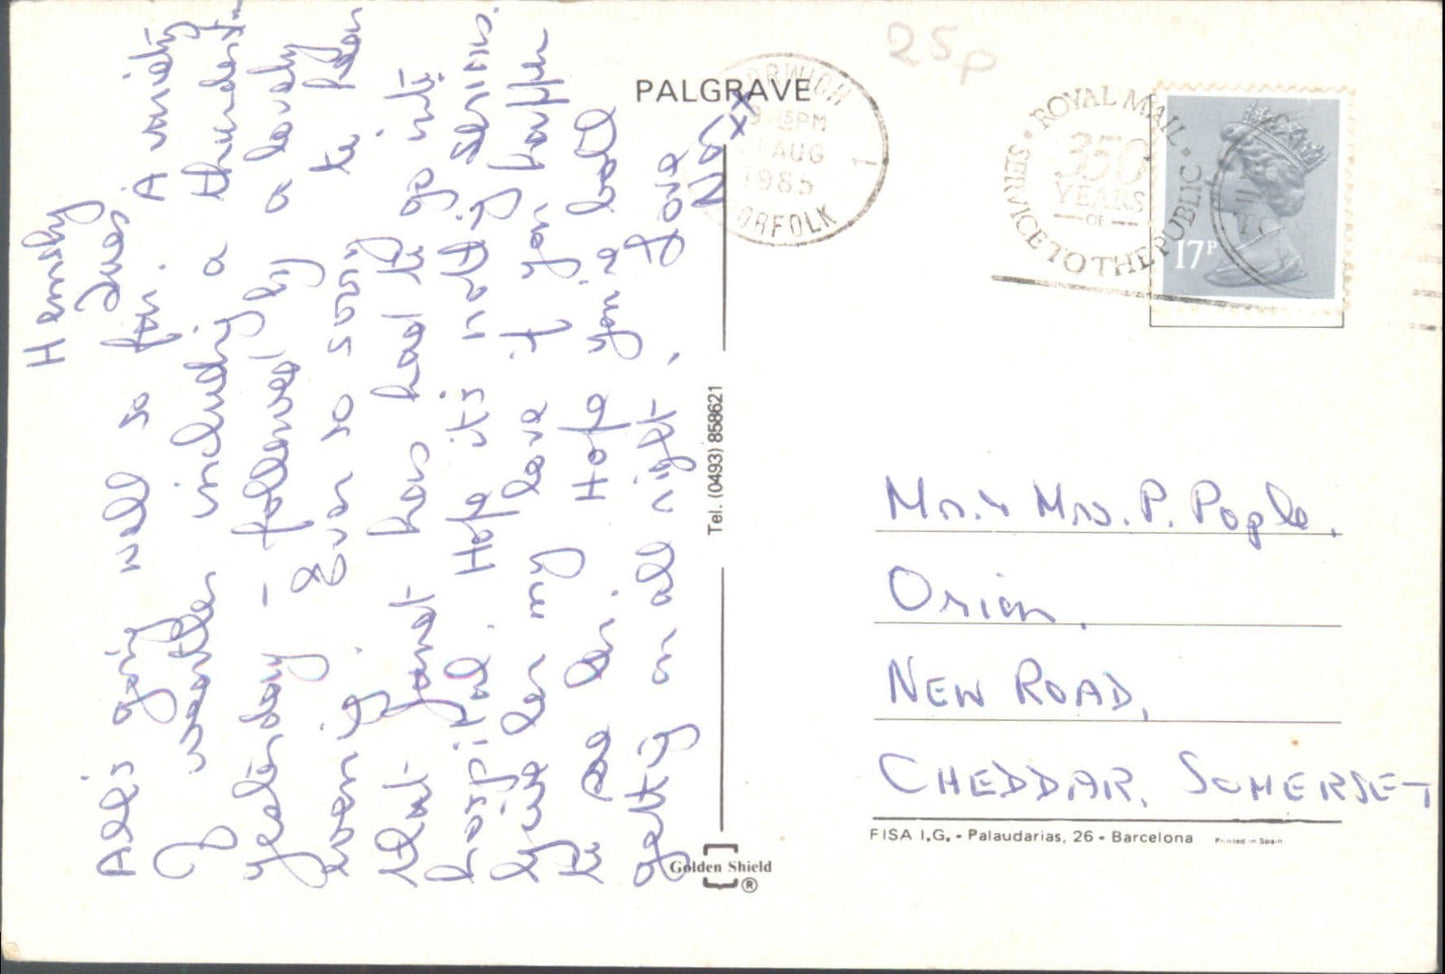 Hemsby
Tues
All's going well so far. A variety
of weather including a thunderstm
yesterday - followed by a lovely
evening. Ever so sorry to hear
that Janet has had to go into
hospital. Hope it's nothing serious.
Give her my love if you happen
to see her. Hope you're both
getting on all right,
Love
xx
25p
PALGRAVE
NORWICH
PM
AUG
1985
NORFOLK
1
ROYAL MAIL
350
YEARS
OF
SERVICE TO THE PUBLIC
17P
Tel. (0493) 858621
Mr. & Mrs. P. Pople.
Orion.
NEW ROAD,
CHEDDAR, SOMERSET
FISA I.G. - Palaudarias, 26 - Barcelona Printed in Spain
Golden Shield
®